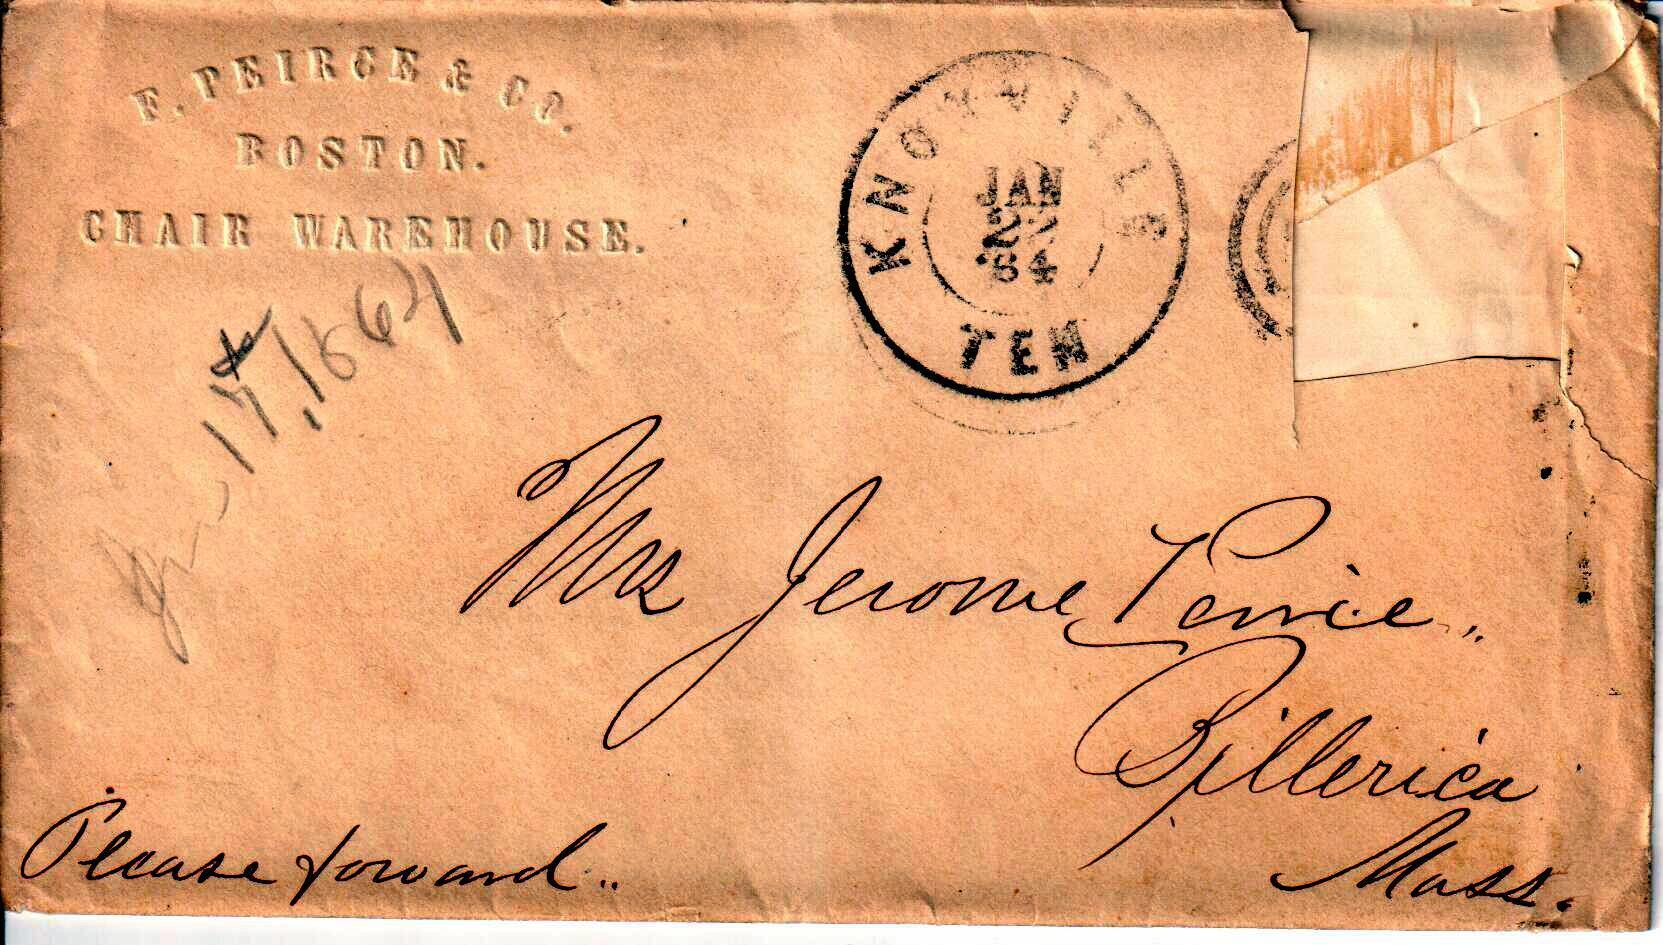 F. PEIRCE & CO.
BOSTON.
CHAIR WAREHOUSE.
KNOXVILLE
JAN
22
'64
TEN
Jan. 17, 1864
Mrs Jerome Peirce,,
Billerica
Mass.
Please forward..